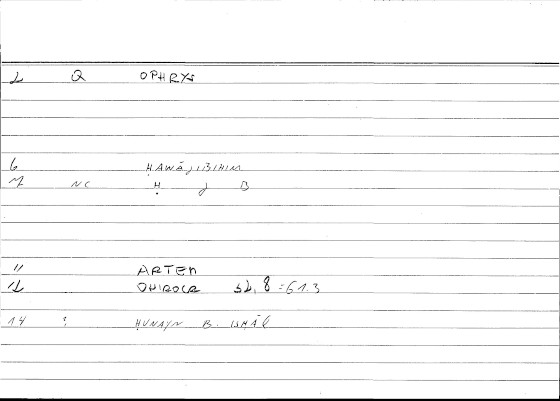 2 Q OPHRYS
6 ḤAWĀJIBIHIM
7 NC Ḥ J B
11 ARTEM
12 OHIROCR 51, 8 = 61.3
14 ? ḤUNAYN B. ISḤĀQ